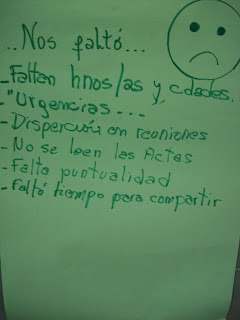 ..Nos faltó...
-Faltan hnos/as y cdades.
-"Urgencias...
-Disperción en reoniones
-No se leen las Actas
-Falta puntualidad
-Faltó tiempo para compartir